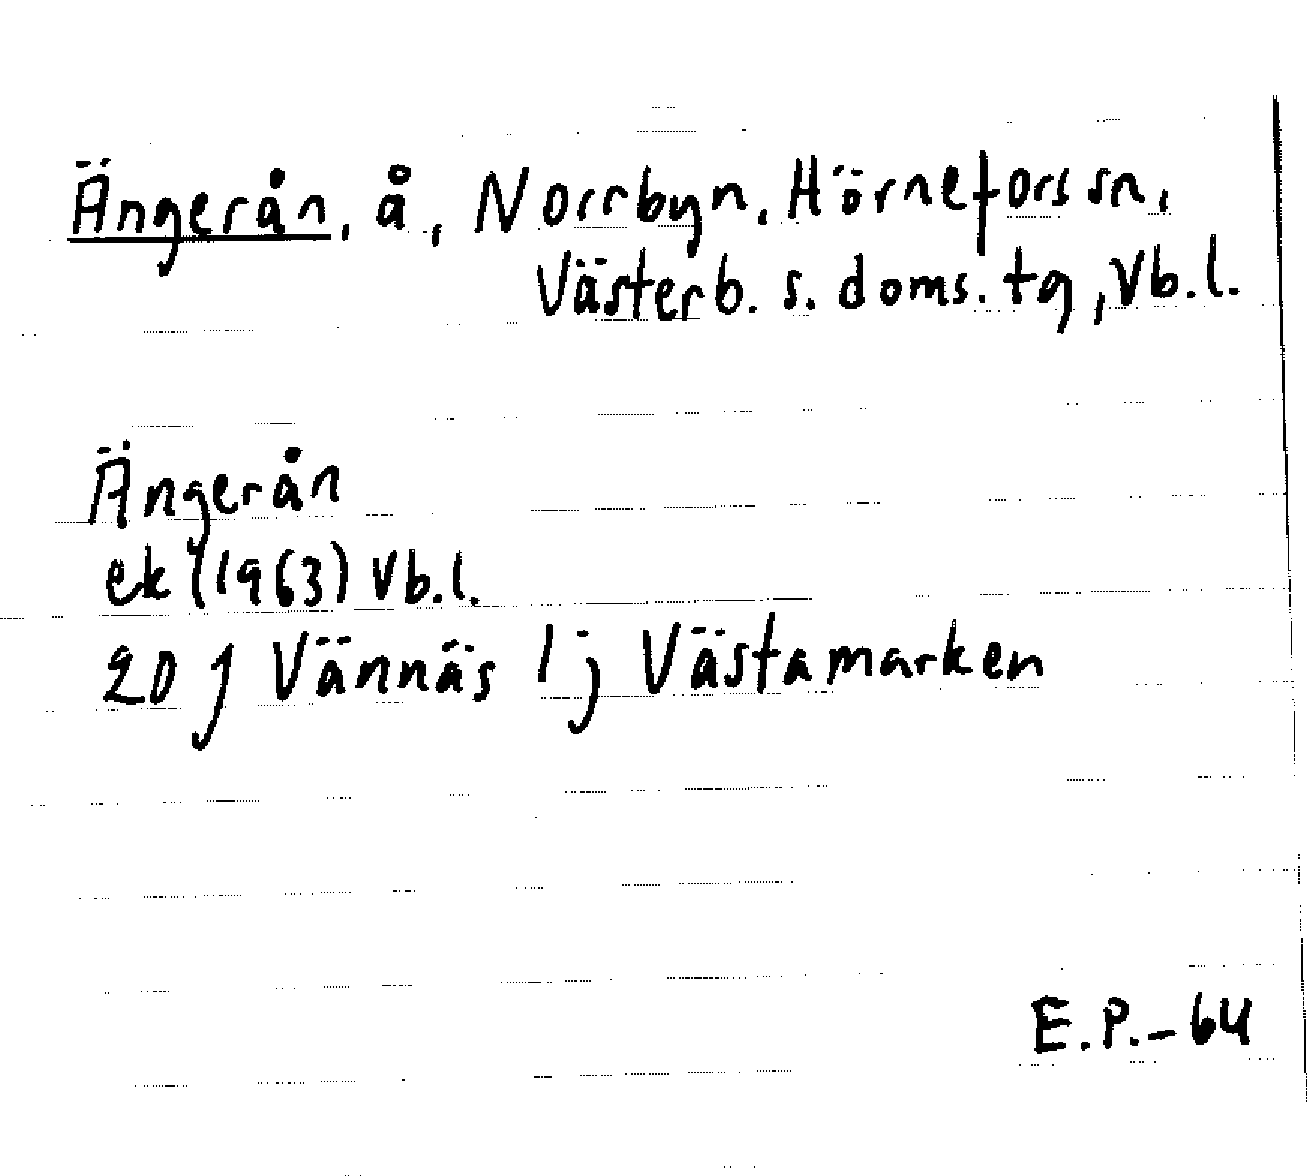 Ängerån, å, Norrbyn, Hörnefors sn,
Västerb. s. doms. tg, Vb.l.
Ängerån
ek (1963) Vb.l.
20 J Vännäs 1 j Västamarken
E.P.-64